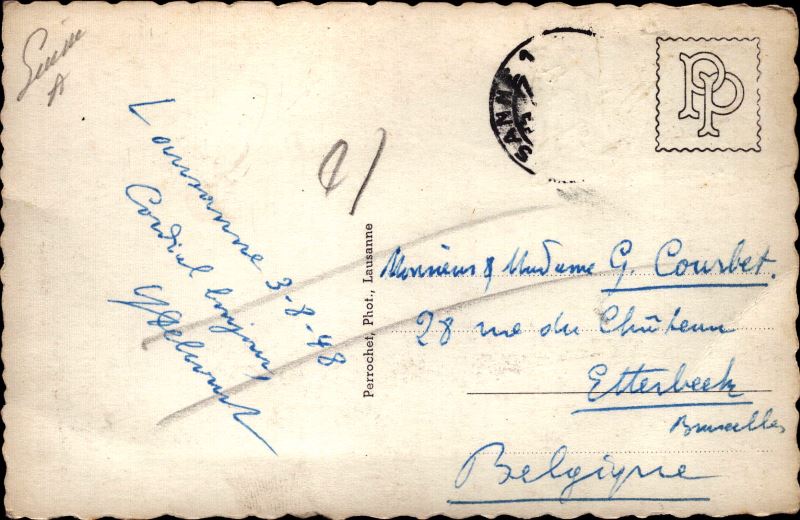 Lausanne 3-8-48
Cordial bonjour,
Perrochet, Phot., Lausanne
SANNE
PP
Monsieur & Madame G. Courbet.
28 rue du Château
Etterbeek
Bruxelles
Belgique